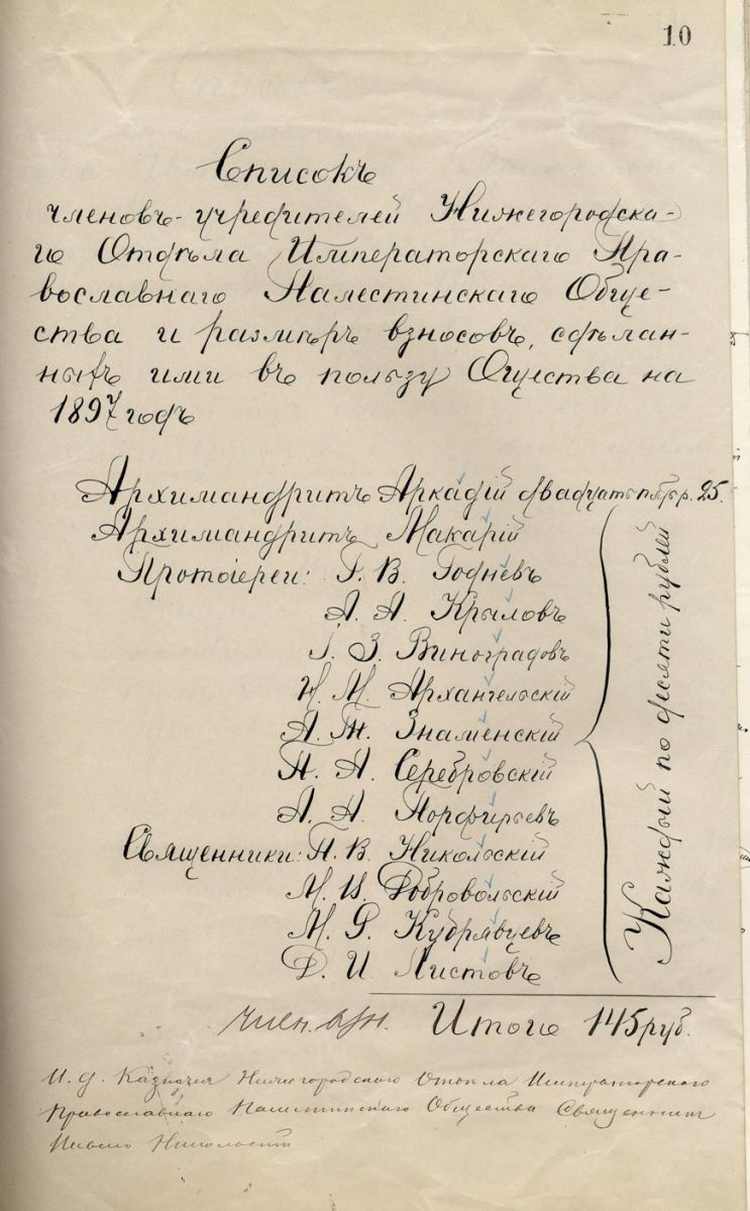 10
Списокъ
членовъ-учредителей Нижегородска-
го Отдѣла Императорскаго Пра-
вославнаго Палестинскаго Обще-
ства и размѣръ взносовъ, сдѣлан-
ныхъ ими въ пользу Ощества на
1897 годъ
Архимандритъ Аркадій двадцать пять р. 25.
Архимандритъ Макарій
Протоіереи: Г. В. Годневъ
А. А. Крыловъ
І. З. Виноградовъ
Н. М. Архангельскій
А. Ж. Знаменскій
П. А. Серебровскій
А. А. Порфирьевъ
Священники: П. В. Никольскій
М. И. Добровольскій
М. Ѳ. Кудрявцевъ
Д. И. Листовъ
Каждый по десяти рублей
Член. взн. Итого 145 руб.
И. д. Казначея Нижегородскаго Отдѣла Императорскаго
Православнаго Палестинскаго Общества Священникъ
Никольскій